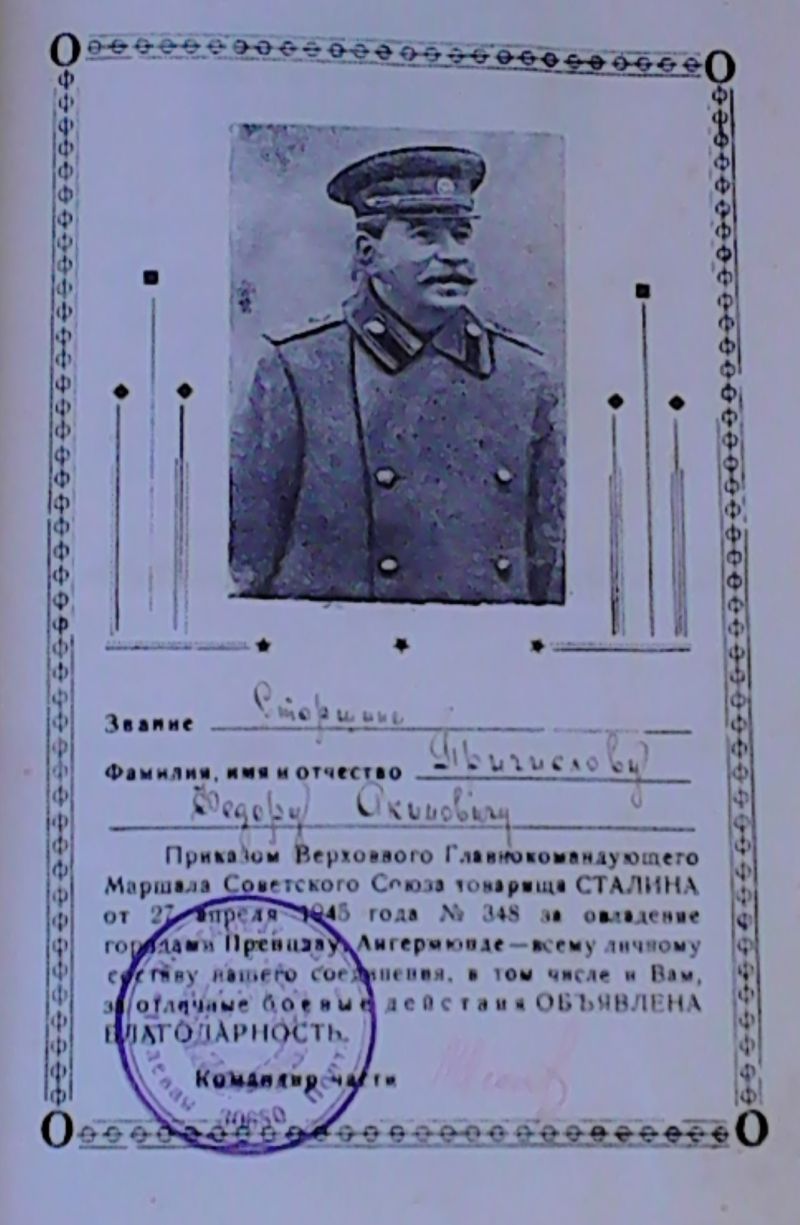 Звание Старшине
Фамилия, имя и отчество Причислову
Федору Акимовичу
Приказом Верховного Главнокомандующего
Маршала Советского Союза товарища СТАЛИНА
от 27 апреля 1945 года № 348 за овладение
городами Пренцлау, Ангермюнде—всему личному
составу нашего соединения, в том числе и Вам,
за отличные боевые действия ОБЪЯВЛЕНА
БЛАГОДАРНОСТЬ.
Командир части
30650